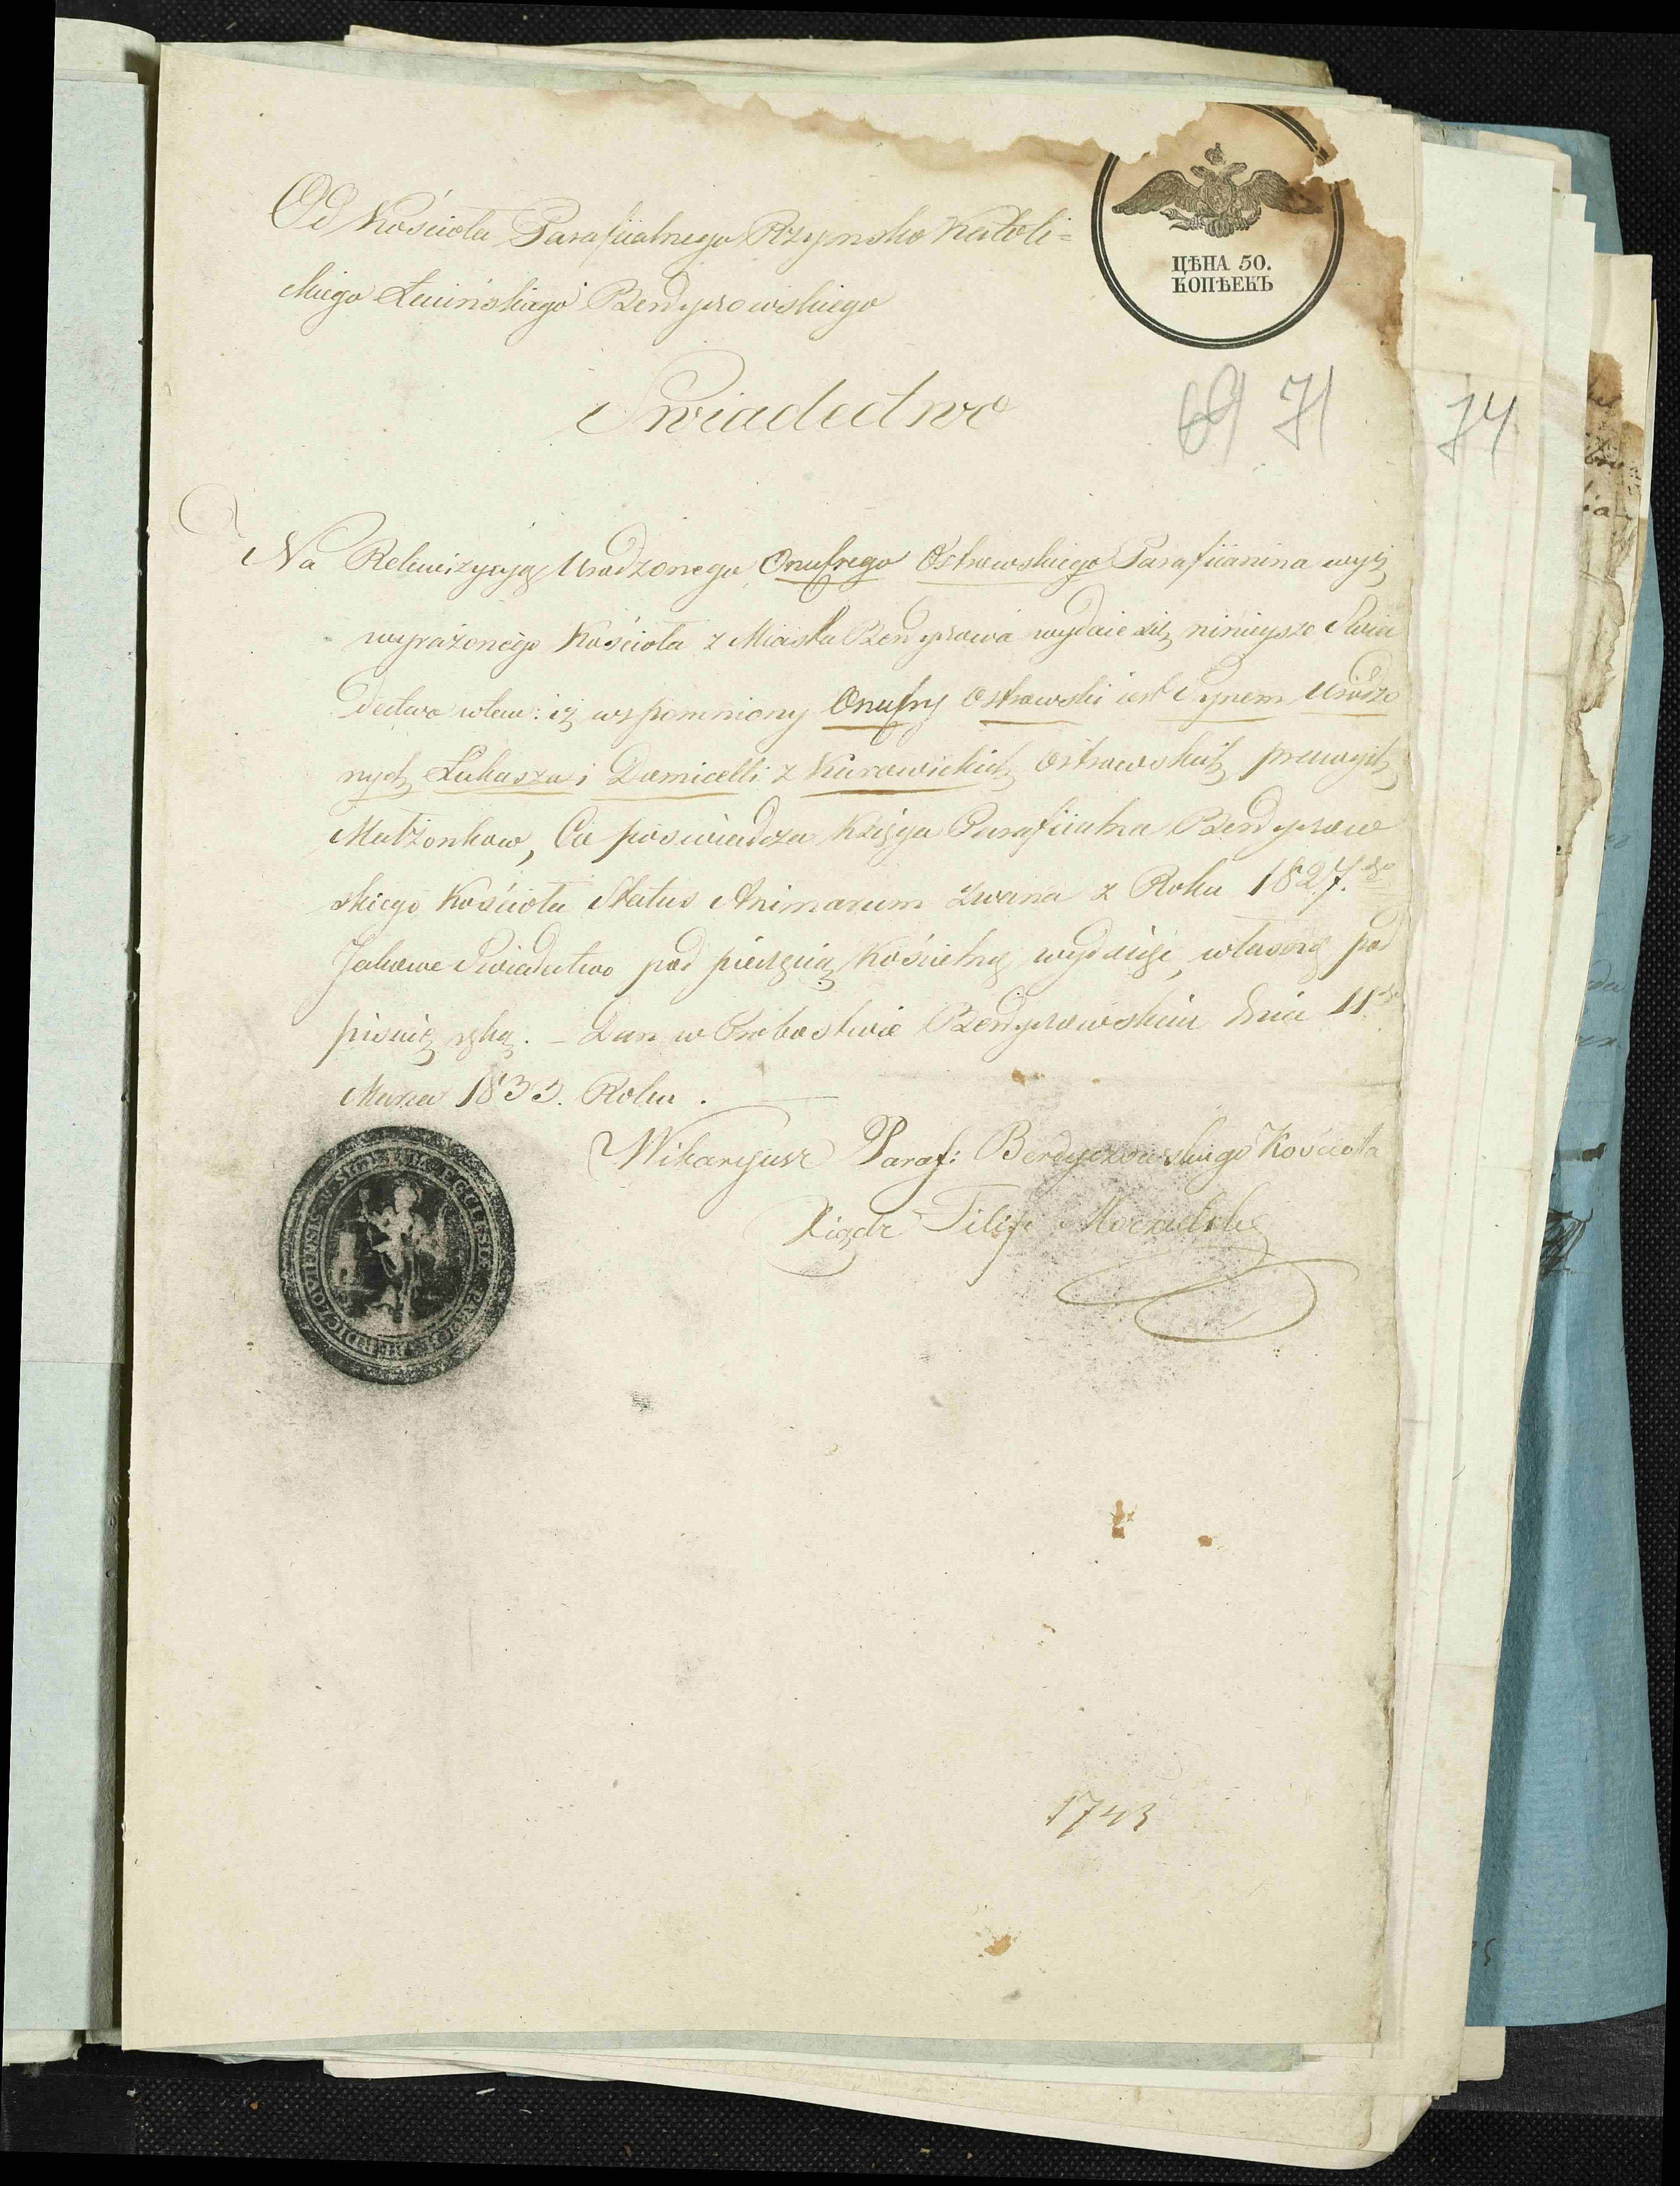 Od Kościoła Parafiialnego Rzymsko Katoli=
ckiego Łacińskiego Berdyczowskiego
ЦѢНА 50.
КОПѢЕКЪ
Swiadectwo
69 71
74
Na Rekwizycyją Urodzonego Onufrego Ostrowskiego Parafiianina wyż
wyrażonego Kościoła z Miasta Berdyczowa wydaie się ninieysze Swia
dectwo w tem: iż wspomniony Onufry Ostrowski iest Synem Urodzo
nych Łukasza i Domicelli z Kurowickich Ostrowskich prawych
Małżonkow, Co poswiadcza Księga Parafiialna Berdyczow
skiego Kościoła Status Animarum zwana z Roku 1827.go
Jakowe Swiadectwo pod pieczęcią Kościelną wydaięć, własną pod
pisuię ręką. – Dan w Probostwie Berdyczowskim dnia 11go
Marca 1833. Roku.
Wikaryusz Paraf: Berdyczowskiego Kościoła
Xiądz Filip
1743